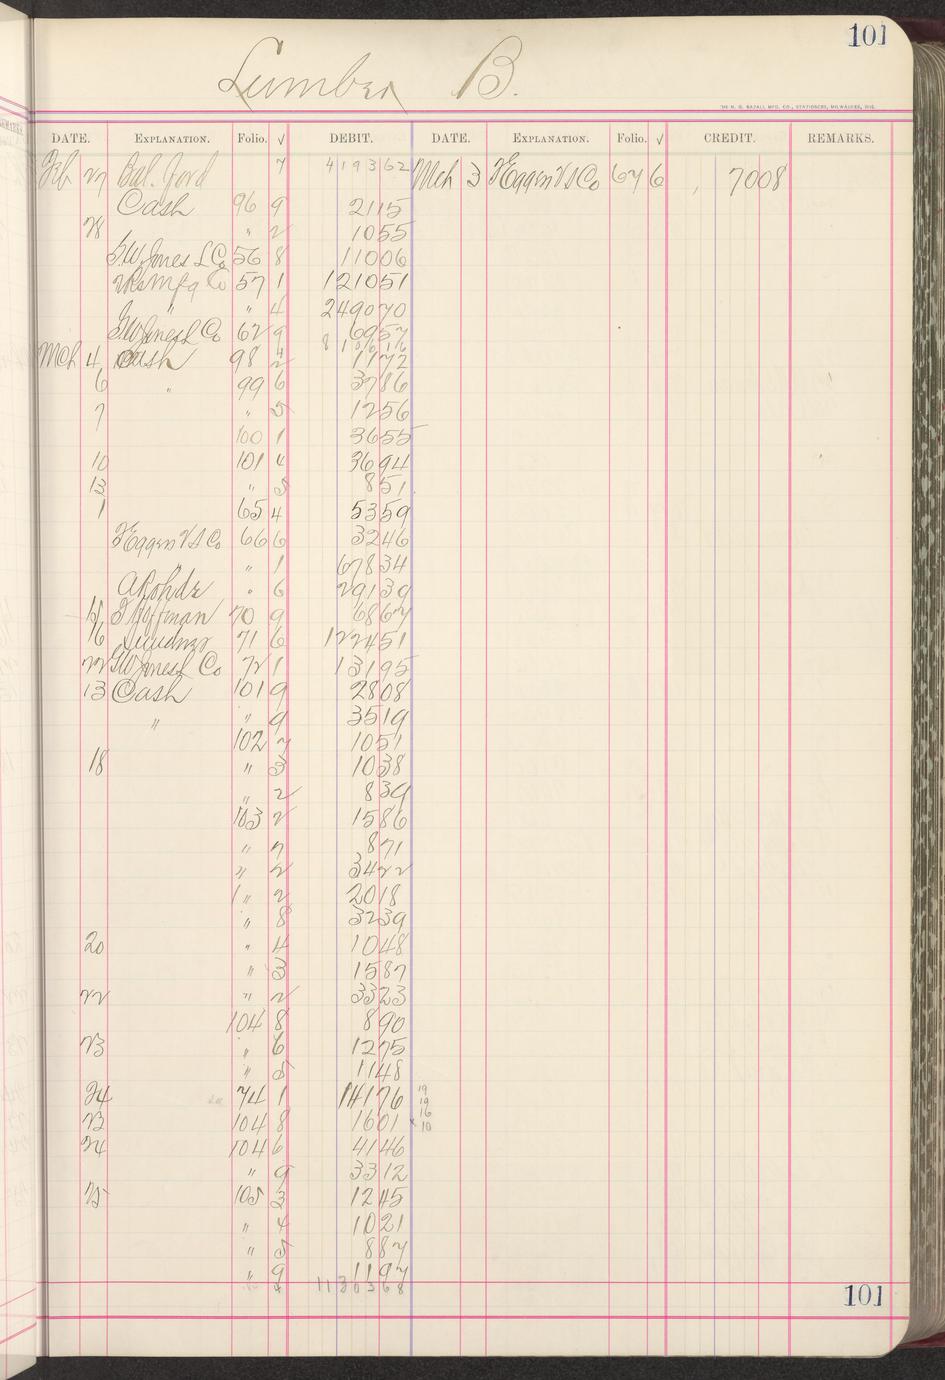 101
Lumber B.
THE H. G. RAZALL MFG. CO., STATIONERS, MILWAUKEE, WIS.
DATE. EXPLANATION. Folio. √ DEBIT. DATE. EXPLANATION. Folio. √ CREDIT. REMARKS.
Feb 27 Bal. Ford 7 419362 Mch 3 F Eggers V S Co 67 6 7008
Cash 96 9 2115
28 " 2 1055
G.W. Jones L Co 56 8 11006
Mfg Co 57 1 121051
" " 4 249070
G.W. Jones L Co 62 9 6957
4 81
Mch 4 Cash 98 2 1172
6 " 99 6 3786
7 " 5 1256
100 1 3655
10 101 4 3694
13 " 5 851
1 65 4 5359
F Eggers V S Co 66 6 3246
" " 1 67834
A Rohde " 6 29139
15 F Hoffman 70 9 6867
16 71 6 122451
22 G.W. Jones L Co 72 1 13195
13 Cash 101 9 2808
" " 9 3519
102 7 1051
18 " 3 1038
" 2 839
103 2 1586
" 7 871
" 2 3422
" 2 2018
" 8 3239
20 " 4 1048
" 3 1587
22 " 2 3323
104 8 890
23 " 6 1275
" 5 1148
24 74 1 14176 19
19
23 104 8 1601 16
x 10
24 104 6 4146
" 9 3312
25 105 3 1245
" 4 1021
" 5 887
" 9 1197
4 1130368
101